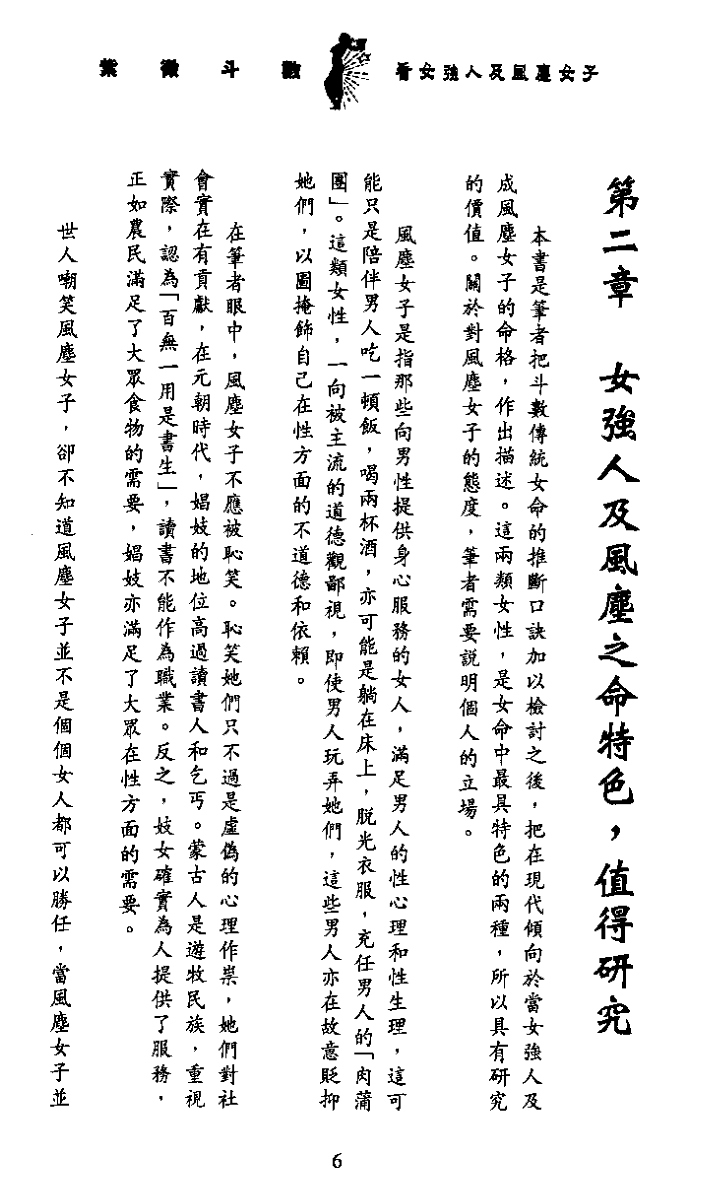 紫微斗數
看女強人及風塵女子
第二章　女強人及風塵之命特色，值得研究
本書是筆者把斗數傳統女命的推斷口訣加以檢討之後，把在現代傾向於當女強人及
成風塵女子的命格，作出描述。這兩類女性，是女命中最具特色的兩種，所以具有研究
的價值。關於對風塵女子的態度，筆者需要說明個人的立場。
風塵女子是指那些向男性提供身心服務的女人，滿足男人的性心理和性生理，這可
能只是陪伴男人吃一頓飯，喝兩杯酒，亦可能是躺在床上，脫光衣服，充任男人的「肉蒲
團」。這類女性，一向被主流的道德觀鄙視，即使男人玩弄她們，這些男人亦在故意貶抑
她們，以圖掩飾自己在性方面的不道德和依賴。
在筆者眼中，風塵女子不應被恥笑。恥笑她們只不過是虛偽的心理作祟，她們對社
會實在有貢獻，在元朝時代，娼妓的地位高過讀書人和乞丐。蒙古人是遊牧民族，重視
實際，認為「百無一用是書生」，讀書不能作為職業。反之，妓女確實為人提供了服務，
正如農民滿足了大眾食物的需要，娼妓亦滿足了大眾在性方面的需要。
世人嘲笑風塵女子，卻不知道風塵女子並不是個個女人都可以勝任，當風塵女子並
6